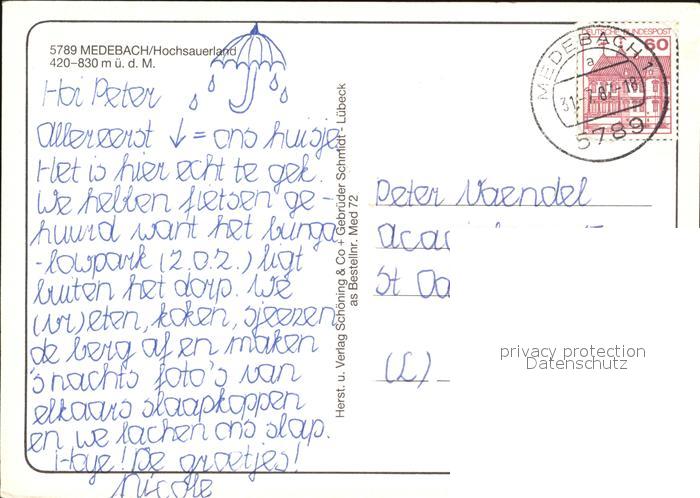 5789 MEDEBACH/Hochsauerland
420–830 m ü. d. M.
Hoi Peter
Allereerst ↓ = ons huisje
Het is hier echt te gek.
We hebben fietsen ge-
huurd want het bunga
-lowpark (2.0.2.) ligt
buiten het dorp. We
(vr)eten, koken, sjeezen
de berg af en maken
's nachts foto's van
elkaars slaapkoppen
en we lachen ons slap.
Haye! De groetjes!
Nicole
Herst. u. Verlag Schöning & Co + Gebrüder Schmidt - Lübeck
as Bestellnr. Med 72
DEUTSCHE BUNDESPOST
60
MEDEBACH 1
a
5789
Peter Vaendel
St
privacy protection
Datenschutz